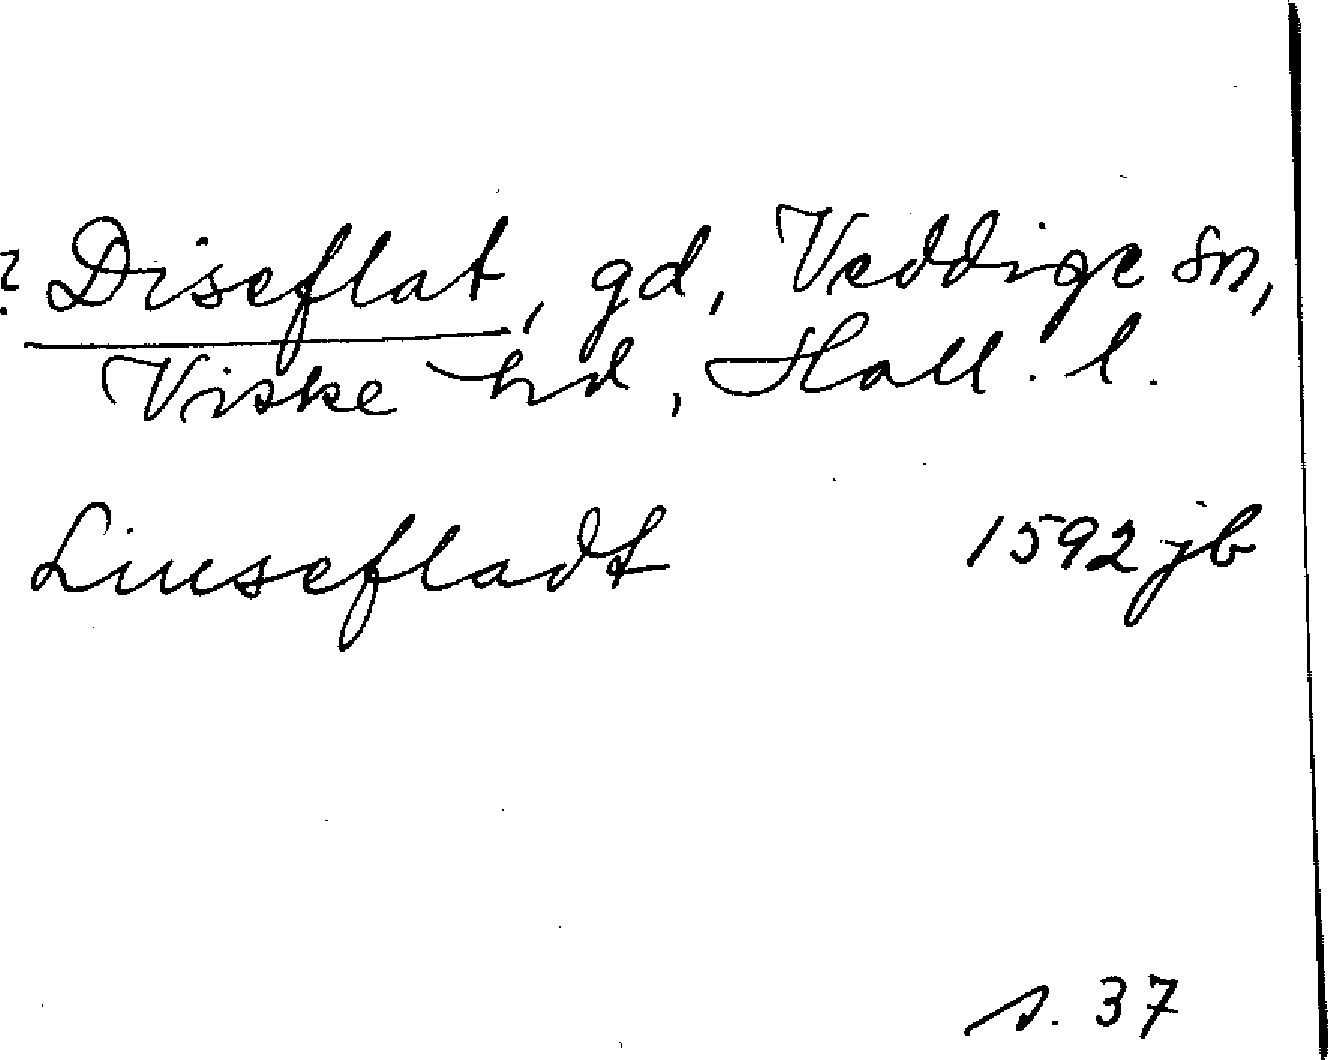 ? Diseflat, gd, Veddige sn,
Viske hd, Hall. l.
Linsefladt 1592 jb
s. 37